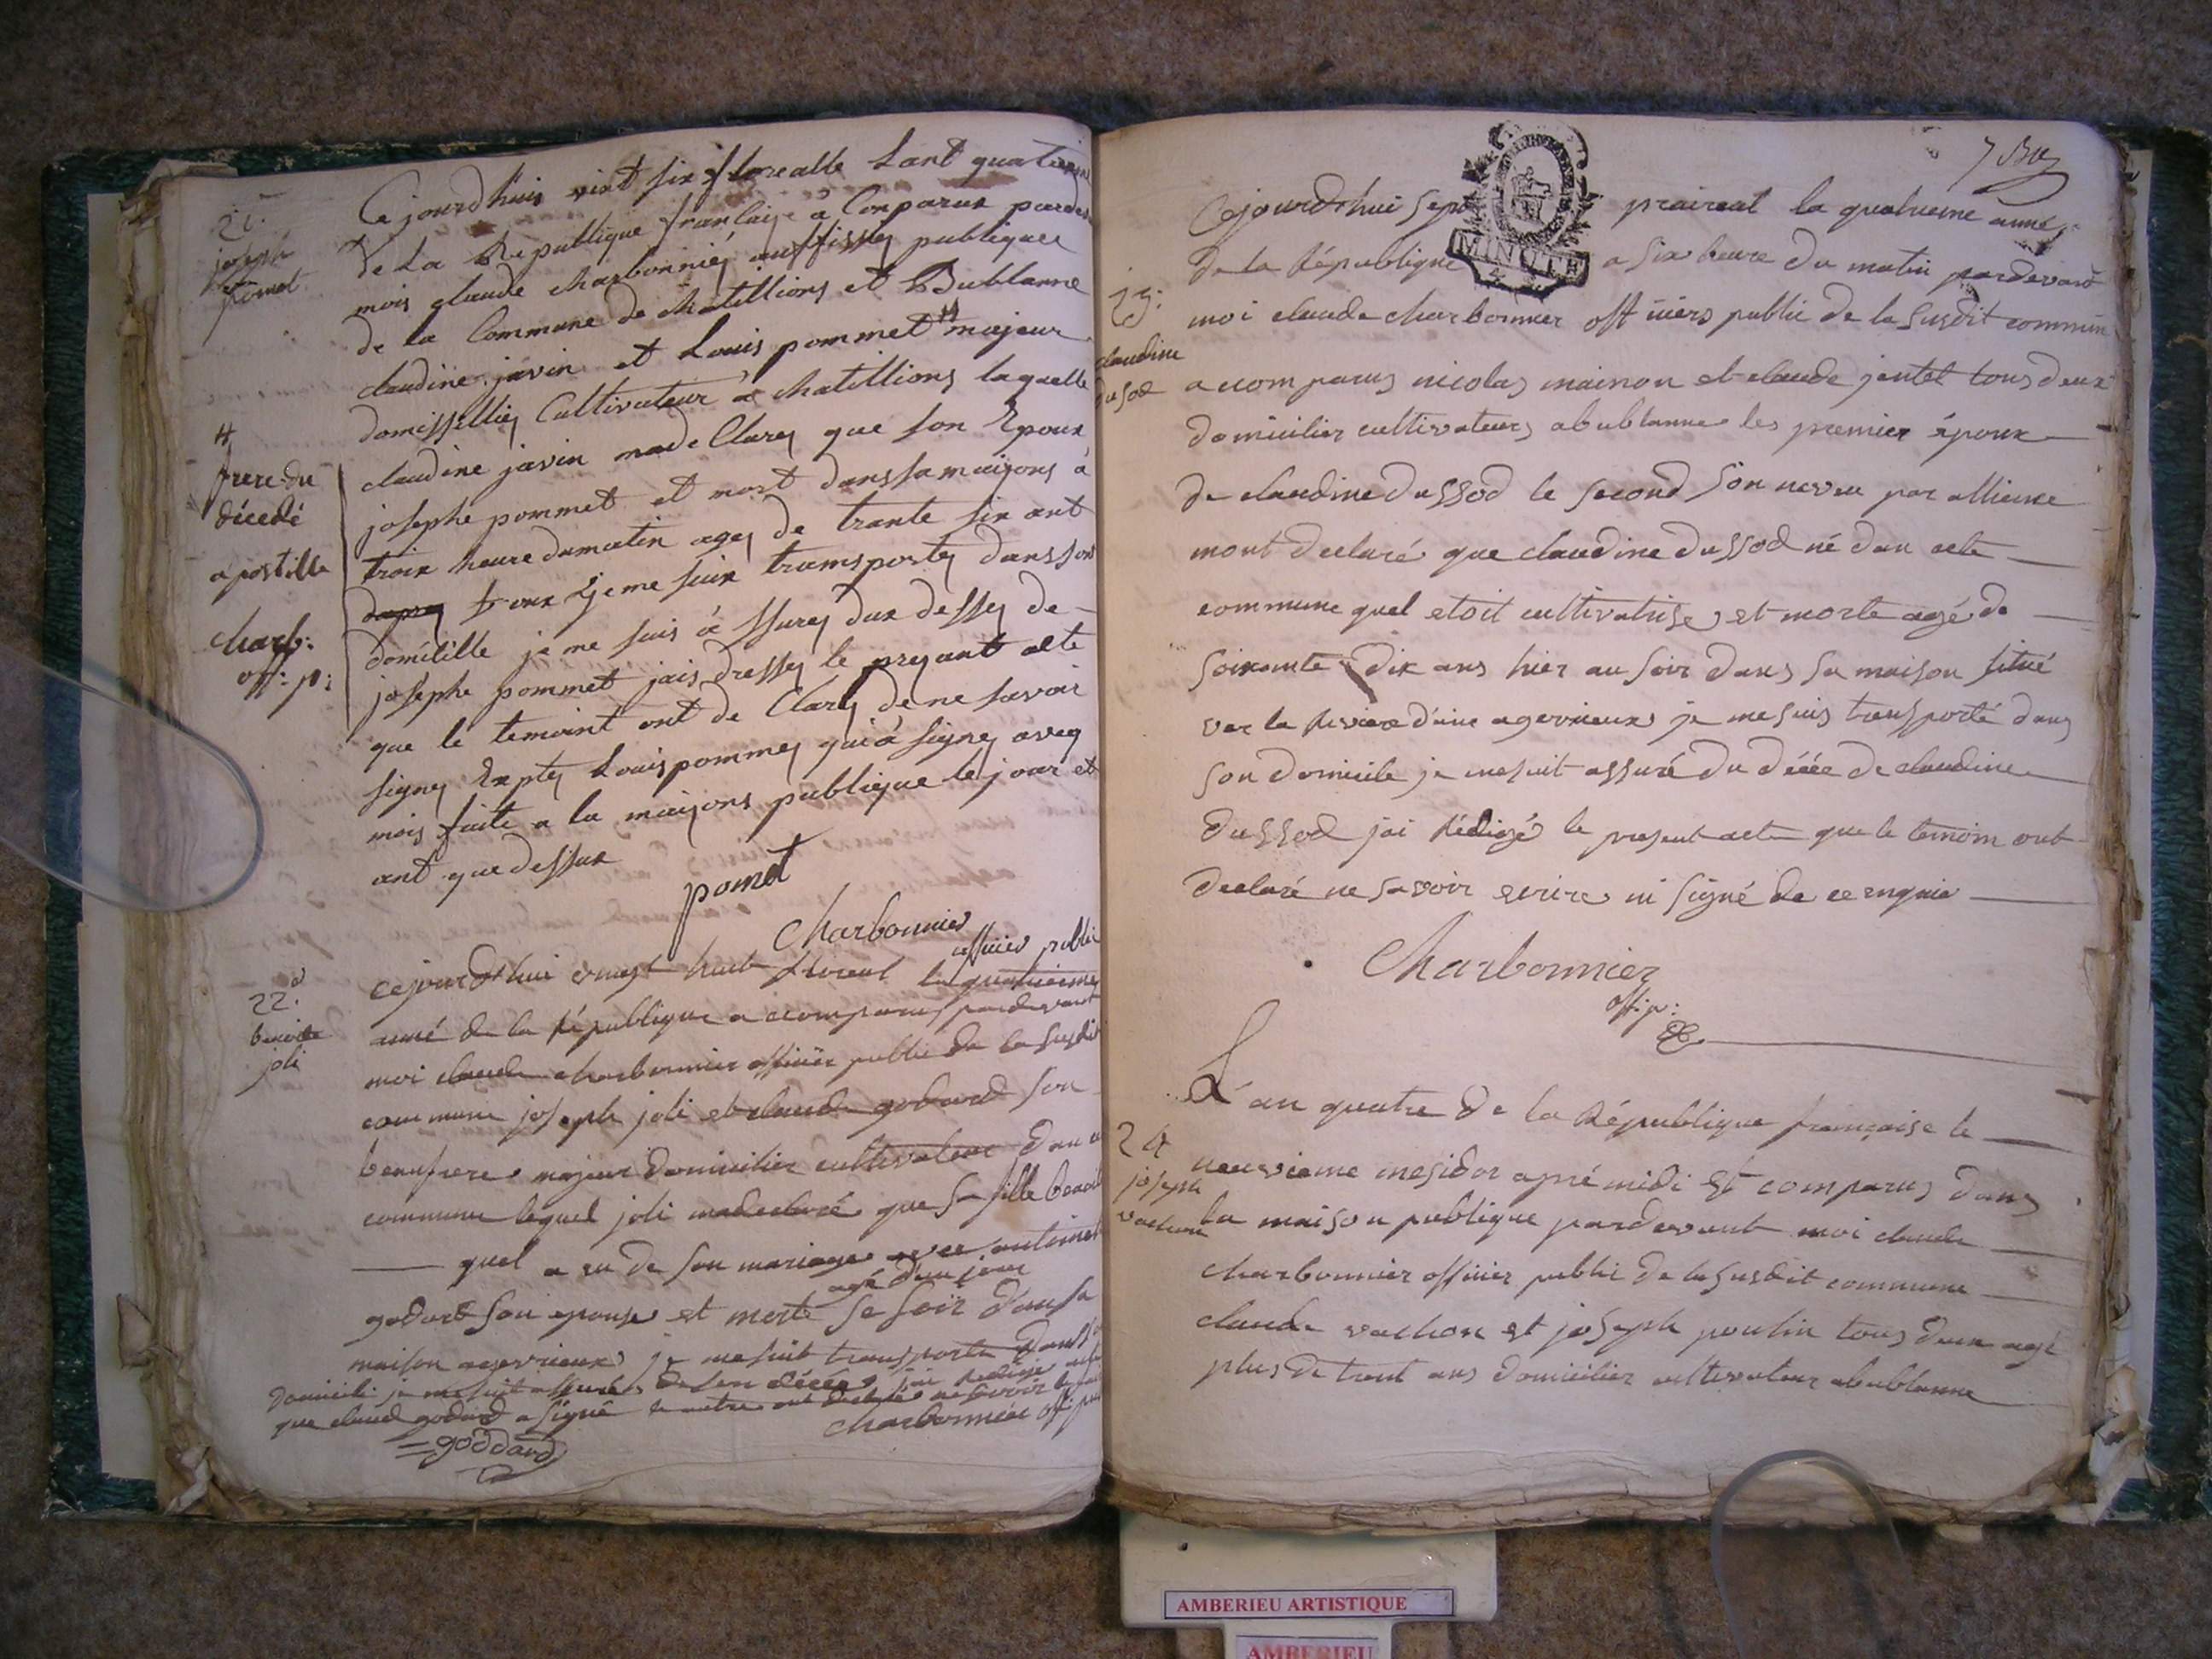 21.
joseph
pomet
Ce jourd'huis vint six florealle Lant quatriem
De La Republique française à Comparux parde
mois glaude charbonnié auffissey publiques
de la Commune de chatillions et Bublanne
claudine javin et Louis pommet # majeur
domissilliey Cultivateur à chatillions laquelle
claudine javin madeClarey que son Epoux
josephe pommet et mort dans sa maisons à
troix heure dumatin agey de trante six ant
# frere du
décedé
apostille
charb:
off: p:
je me suix transportey dans son
domicille je me suis à ssurey dux dessey de
josephe pommet jais dressey le preyant acte
que le temoint ont de Clarey de ne savoir
signey Exptey Louis pommey qui à signey aveq
mois faite a la maisons publique le jour et
ant que dessux
pomet
Charbonnier
officier public
22.
benoite
joli
cejourd'hui vingt huit floreal la quatrieme
anné de la République a accomparus pardevant
moi claude charbonnier officier public de la susdit
commune joseph joli et claude godard son
beaufrere majeur domicilier cultivateur dan ce
commune lequel joli madeclaré que sa fille benoit
quel a eu de son mariage avec antoinet
agé d'un jour
godard son epouse et morte se soir dans sa
maison agevrieux je mesuit transporté dans so
domicile je mesuit assuré de son décée jai rédigé
que claud godard a signé le autre ont declaré ne savoir le faire
charbonnier off: pu
=goddard
7 Bre
MINUTE
Cejourd'hui sept praireal la quatrieme anné
de la République a six heure du matin pardevant
23.
claudine
dussod
moi claude charbonnier officiers public de la susdit commun
a comparus nicolas mainon et claude jentet tous deux
domicilier cultivateurs abublanne les premier époux
de claudine dussod le second son neveu par allience
mont declaré que claudine dussod né dan cete
commune quel etoit cultivatrise et morte agé de
soixante dix ans hier au soir dans sa maison situé
ver la riviere d'ain agevrieux je mesuis transporté dans
son domicile je mesuit assuré du décée de claudine
dussod jai rédigé le present acte que le temoin ont
declaré ne savoir ecrire ni signé de ce enquis
Charbonnier
off: p:
L'an quatre de la République française le
24
joseph
vachon
neuvieme mesidor apré midi Et comparus dans
la maison publique pardevant moi claude
charbonnier officier public de la susdit commune
claude vachon et joseph poulin tous deux agé
plus de trent ans domicilier cultivateur abublanne
AMBERIEU ARTISTIQUE
AMBERIEU